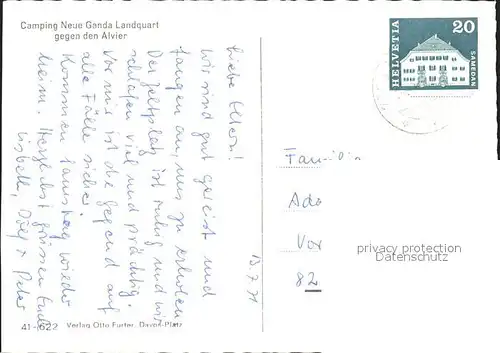 Camping Neue Ganda Landquart
gegen den Alvier
Liebe Eltern!
Wir sind gut gereist und
fangen an, uns zu erholen
Der Zeltplatz ist ruhig und wir
schlafen viel und prächtig.
Vor mir ist die Gegend auf
alle Fälle sicher.
Kommen Samstag wieder
heim. Herzlichst grüssen Euch
Lisbeth, & Peter
13.7.71
41-622 Verlag Otto Furter, Davos-Platz
HELVETIA
20
SAMEDAN
Familie
Ado
Vor
82
privacy protection
Datenschutz